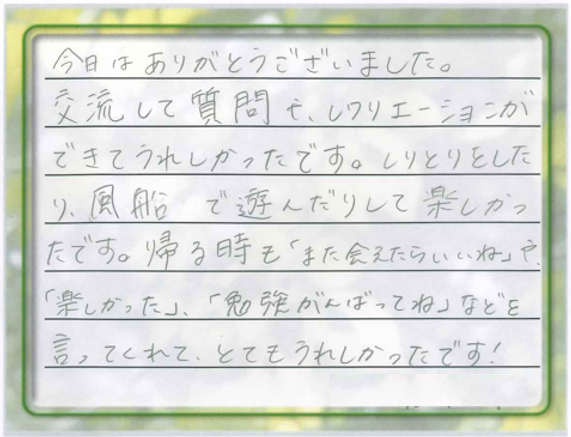 今日はありがとうございました。
交流して質問や、レクリエーションが
できてうれしかったです。しりとりをした
り、風船で遊んだりして楽しかっ
たです。帰る時も「また会えたらいいね」や、
「楽しかった」、「勉強がんばってね」などを
言ってくれて、とてもうれしかったです!